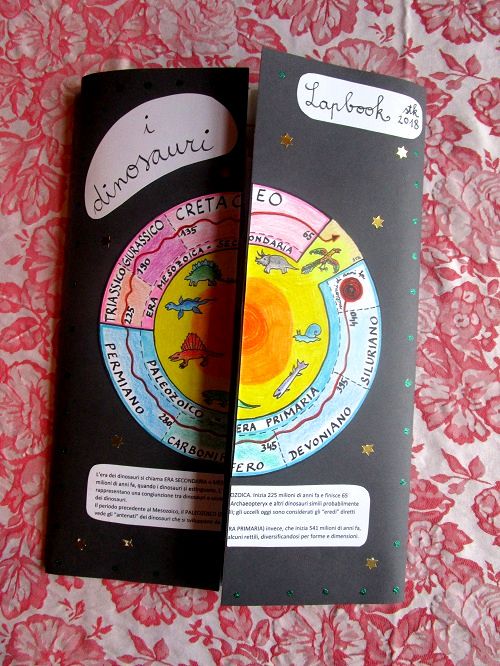 i
dinosauri
Lapbook stk
2018
TRIASSICO
GIURASSICO
CRETACEO
225
190
135
65
ERA MESOZOICA - SECONDARIA
PERMIANO
CARBONIFERO
DEVONIANO
SILURIANO
280
345
395
440
PALEOZOICO
ERA PRIMARIA
L'era dei dinosauri si chiama ERA SECONDARIA o
milioni di anni fa, quando i dinosauri si estinguono. L'
rappresentano una congiunzione tra dinosauri e
dei dinosauri.
Il periodo precedente al Mesozoico, il PALEOZOICO
vede gli "antenati" dei dinosauri che si sviluppano da
OZOICA. Inizia 225 milioni di anni fa e finisce 65
Archaeopteryx e altri dinosauri simili probabilmente
i; gli uccelli oggi sono considerati gli "eredi" diretti
RA PRIMARIA) invece, che inizia 541 milioni di anni fa,
alcuni rettili, diversificandosi per forme e dimensioni.